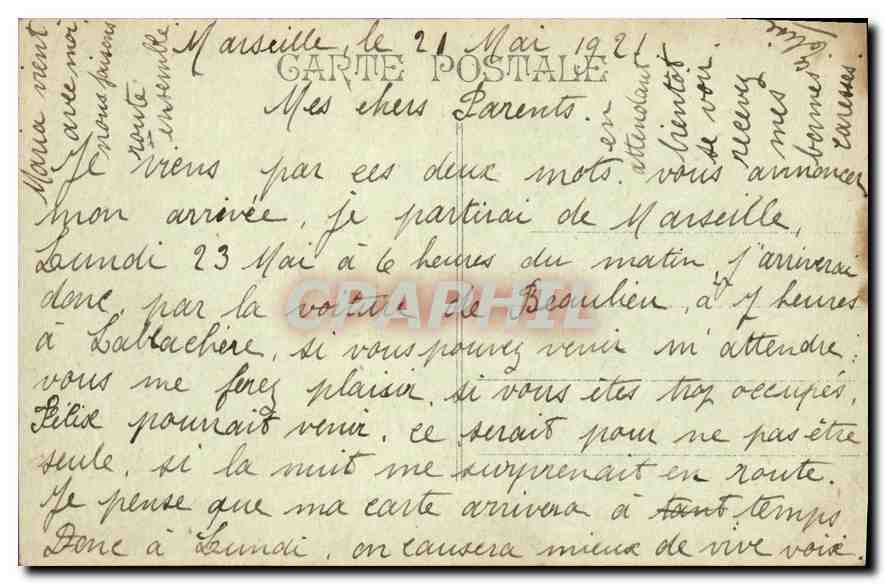 Marseille, le 21 Mai 1921
CARTE POSTALE
Mes chers Parents.
Je viens par ces deux mots vous annoncer
mon arrivée, je partirai de Marseille,
Lundi 23 Mai à 6 heures du matin, j'arriverai
donc, par la voiture de Beaulieu, à 7 heures
à Lablachère, si vous pouvez venir m'attendre;
vous me ferez plaisir, si vous êtes trop occupés,
Félix pourrait venir, ce serait pour ne pas être
seule, si la nuit me surprenait en route.
Je pense que ma carte arrivera à tant temps
Donc à Lundi, on causera mieux de vive voix.
en
attendant
bientôt
se voir
recevez
mes
bonnes
caresses
Maria vient
avec moi
nous faisons
route
ensemble
CPAPHIL